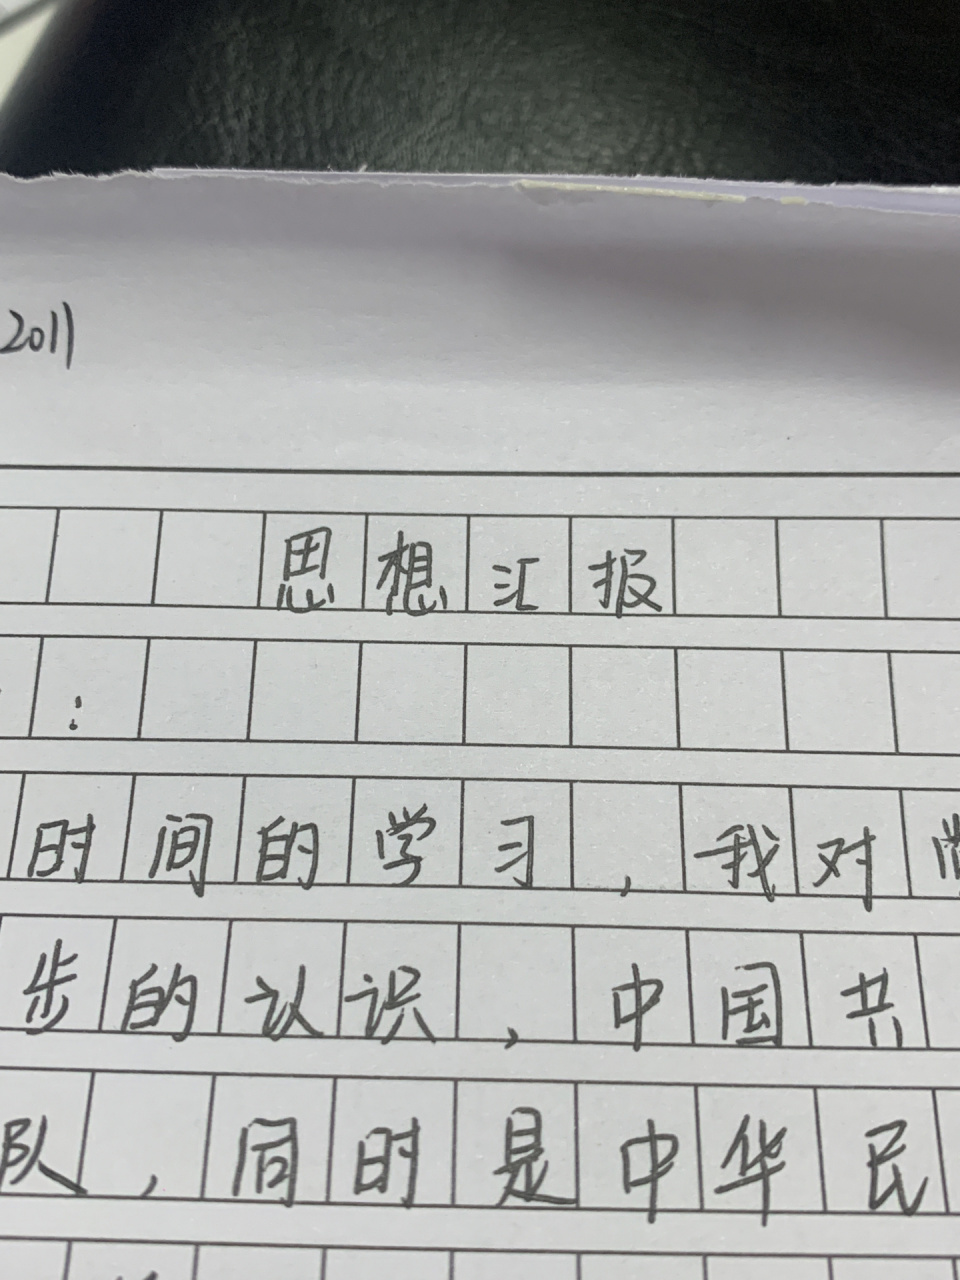 2011
思想汇报
:
时间的学习，我对
步的认识，中国共
队，同时是中华民